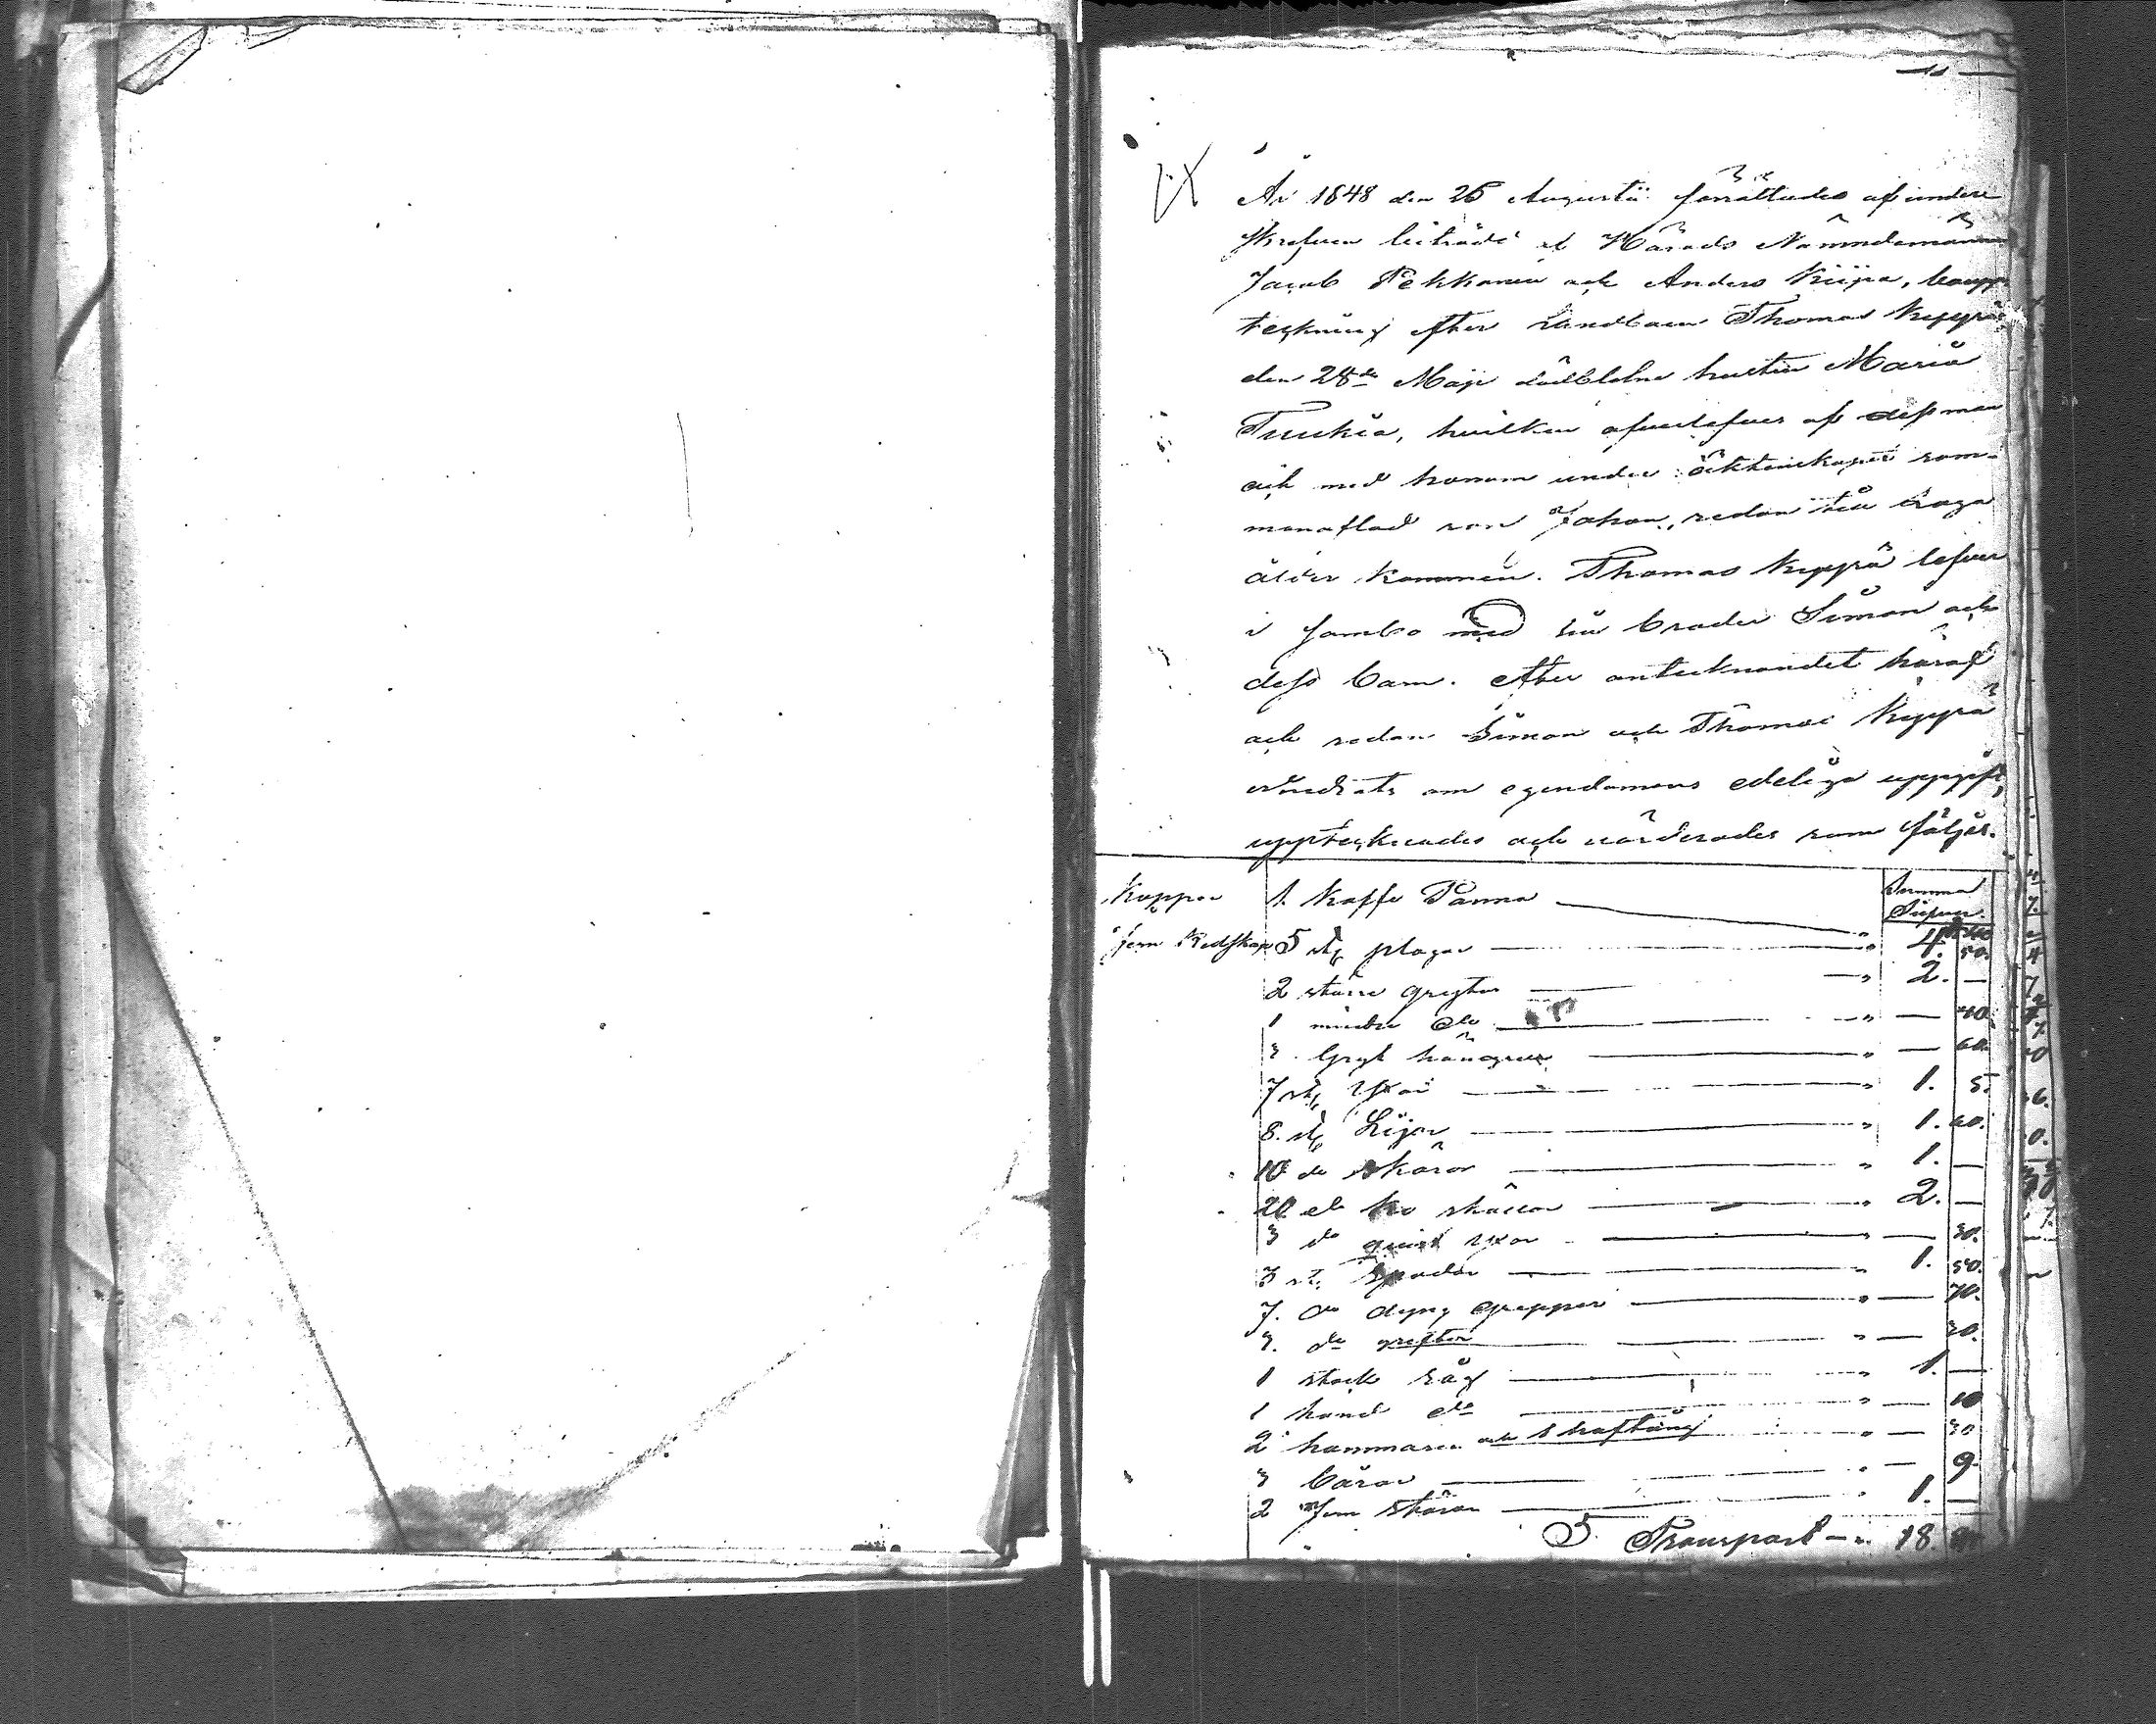 År 1848 den 26 Augusti förrättades af under
skrefven biträdd af Härads Nämndemännen
Jacob Pekkanen och Anders Kiipa, boupp
teckning efter Landbon Thomas Kyyrä
den 28de Maji dödblefne hustru Maria
Tuukia, hvilken öfverlefves af dess man
och med honom under äktenskapet sam-
manaflad son Johan, redan till laga
ålder kommen. Thomas Kyyrä lefver
i sambo med sin broder Simon och
dess barn. efter antecknandet häraf
och sedan Simon och Thomas Kyyrä
om egendomens edeliga uppgift,
upptecknades och värderades som följer.
Koppar 1. Kaffe Panna
Summa
Silfver.
Jern Redskap 5 st plogar — " 4. 50.
2 större grytor — " 2. —
1 mindre do — " — 40.
3. Gryt hängen — " — 60.
7 st yxor — " 1. 5.
8. st Lijor — " 1. 60.
10 do skäror — " 1. —
20 do skällor — " 2. —
3 do yxor — " — 30.
3 st Spadar — " 1. 50.
7. do dyng grepper — " — 70.
3. do greftor — " — 30.
1 stock såg — " 1. —
1 hand do — " — 10
2 hammaren och 1 haftång " — 30
3 bårar — " — 9
2 Jern störar — " 1. —
Transport — " 18.